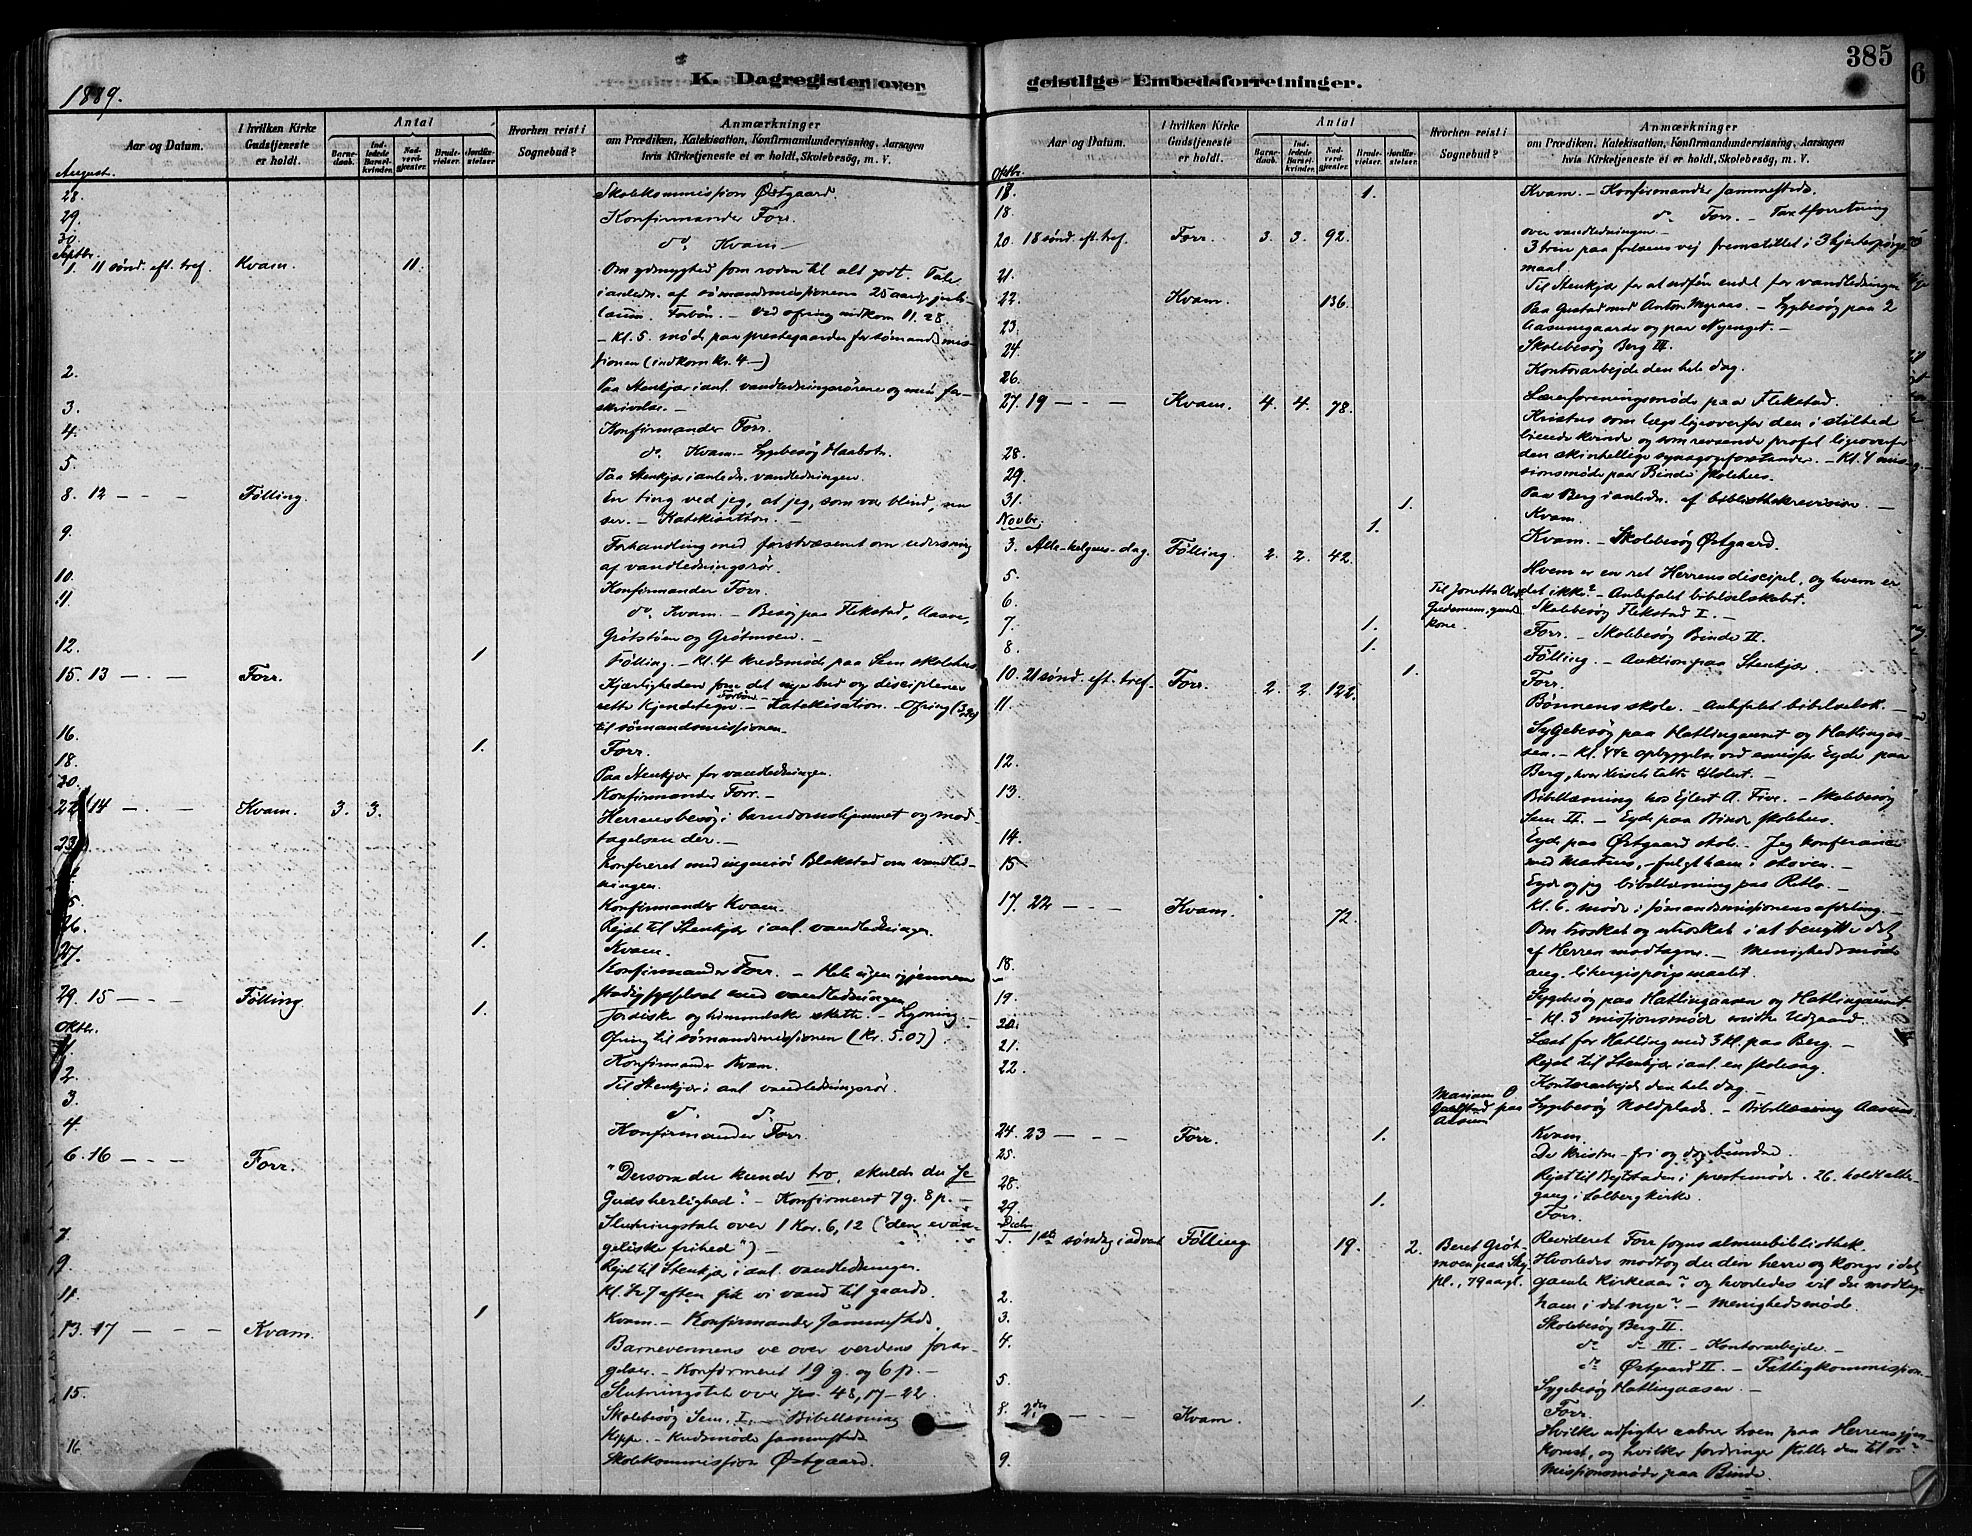 385
K. Dagregister over geistlige Embedsforretninger.
1889.
Aar og Datum.
I hvilken Kirke Gudstjeneste er holdt.
Antal
Barnedaab.
Indledede Barselkvinder.
Nadverdgjester.
Brudevielser.
Jordfæstelser.
Hvorhen reist i Sognebud?
Anmærkninger
om Prædiken, Katekisation, Konfirmandundervisning, Aarsagen
hvis Kirketjeneste ei er holdt, Skolebesög, m. V.
August.
28. Skolekommission Østgaard.
29. Konfirmander Forr.
30. do. Kvam.
Septbr.
1. 11 sønd. eft. tref. Kvam. 11. Om ydmyghed som roden til alt godt. Tale
i anledn. af sømandsmissionens 25 aars jubi-
læum. Forbøn. - Ved ofring indkom 11.28
- Kl. 5. møde paa prestegaarden for sømandsmis-
sionen (indkom Kr. 4 -)
2. Paa Stenkjær i anl. vandledningsrørene og
skrivelse. -
3. Konfirmander Forr.
4. do. Kvam - Sygebesøg
5. Paa Stenkjær i anledn. vandledningen.
8. 12 - - - Følling. En ting ved jeg, at jeg, som var blind, nu
ser. - Katekisation. -
9. Forhandling med forstvæsenet om udvisning
af vandledningsrør.
10. Konfirmander Forr.
11. do. Kvam - Besøg paa Flekstad, Aasve,
Grøtstøen og Grøtmoen. -
12. 1 Følling. - Kl. 4 kredsmøde paa Sem skolehus
15. 13 - - - Forr. Kjærligheden som det nye bud og disciplenes
rette Kjendetegn - Forbøn Katekisation. - Ofring
til sømandsmissionen.
16. 1. Forr.
18. Paa Stenkjær for vandledningen.
20. Konfirmander Forr. -
22. 14 - - - Kvam. 3. 3. Herrens besøg i barndomshjemmet og mod-
tagelsen der. -
23. Konfereret med ingeniør Blakstad om vandled-
ningen.
Konfirmander Kvam.
26. Rejst til Stenkjær i anl. vandledningen.
27. 1. Kvam.
Konfirmander Forr. - Hele ugen igjennem
stadig sysselsat med vandledningen
29. 15 - - - Følling. 1. Jordiske og himmelske skatte. -
Ofring til sømandsmissionen (Kr. 5.07).
Oktbr.
1. Konfirmander Kvam.
2. Til Stenkjær i anl. vandledningsrør.
3. d. d.
4. Konfirmander Forr.
6. 16 - - - Forr. "Dersom du kunde tro, skulde du se
Guds herlighed". - Konfirmeret 7 g. 8 p. -
Slutningstale over 1 Kor. 6, 12 ("den evan-
geliske frihed") -
7. Rejst til Stenkjær i anl. vandledningen.
9. Kl. aften fik vi vand til gaards.
11. 1 Kvam - Konfirmander sammesteds.
13. 17 - - - Kvam. Barnevennens ve over verdens forar-
gelser. - Konfirmeret 19 g. og 6 p. -
Slutningstale over Jes. 48, 17-22.
15. Skolebesøg Sem. I. - Bibellæsning
Kippe. - Kredsmøde sammesteds
16 Skolekommission Østgaard.
Aar og Datum.
I hvilken Kirke Gudstjeneste er holdt.
Antal
Barnedaab.
Indledede Barselkvinder.
Nadverdgjester.
Brudevielser.
Jordfæstelser.
Hvorhen reist i Sognebud?
Anmærkninger
om Prædiken, Katekisation, Konfirmandundervisning, Aarsagen
hvis Kirketjeneste ei er holdt, Skolebesøg, m. V.
Oktbr.
17. 1. Kvam. - Konfirmander sammesteds.
18. d. Forr. - Taxtforretning
over vandledningen -
20. 18 sønd. eft. tref. Forr. 3. 3. 92. 3 trin paa frelsens vej fremstillet i 3 hjertespørgs-
maal.
21. Til Stenkjær for at udføre endel for vandledningen
22. Kvam. 136. Paa Gustad med Anton Myraas - Sygebesøg paa 2
Aasumgaarde og paa Nyenget. -
23. Skolebesøg Berg III.
24. Kontorarbejde den hele dag.
26. Lærerforeningsmøde paa Flekstad.
27. 19 - - - Kvam. 4. 4. 78. Kristus som læge ligeoverfor den i stilhed
lidende kvinde og som revsende profet ligeoverfor
den skinhellige synagogeforstander. - Kl. 4 mis-
sionsmøde paa Binde skolehus.
28.
29. Paa Berg i anledn. af bibliothekrevision. -
31. 1. Kvam.
Novbr.
1. Kvam. - Skolebesøg Østgaard.
3. Alle-helgens-dag. Følling. 2. 2. 42. Hvem er en ret Herrens discipel, og hvem er
det ikke? - Anbefalet bibelselskabet.
5. Skolebesøg Flekstad I. -
6. Til Jonetta kone.
7. 1. Forr. - Skolebesøg Binde II.
8. 1. Følling. - Auktion paa Stenkjær
10. 21 sønd. eft. tref. Forr. 2. 2. 122. 1. Forr.
Bønnens skole. - Anbefalet bibelselsk. -
11. Sygebesøg paa Hatlingaunet og Hatlingaa-
sen. - Kl. 4 1/2 opbyggelse ved emissær Eyde paa
Berg, hvor
12. Bibellæsning hos Ejlert A. Five. - Skolebesøg
13. Sem II. - Eyde paa Binde skolehus.
14. Eyde paa Østgaard skole. Jeg
med Martius, - fulgt ham i skoven. -
15 Eyde og jeg bibellæsning paa -
Kl. 6. møde i sømandsmissionens afdeling. -
17. 22 - - - Kvam. 72. Om troskab og utroskab i at benytte det
af Herren modtagne. - Menighedsmøde
ang. liturgispørgsmaalet.
18. Sygebesøg paa Hatlingaasen og Hatlingaunet
19. - Kl. 3 missionsmøde midtre Udgaard
20. Læst for Hatling med 3 kl. paa Berg. -
21. Rejst til Stenkjær i anl. en skolesag.
22. Kontorarbejde den hele dag. -
Sygebesøg Koldplads. - Bibellæsning Aasum
24. 23 - - - Forr. 1. Kvam.
De kristne - fri og dog bundne
25. Rejst til Bejtstaden i prestemøde. 26. holdt alter-
gang i Solberg kirke.
28.
29. 1. Forr.
Decbr.
1. 1ste søndag i advent Følling 19. 2. Beret Grøt-
moen paa Syg-
pl., 79 aar gl.
Revideret Forr sogns almuebibliothek.
Hvorledes modtog du den herre og konge i det
gamle Kirkeaar? og hvorledes vil du modtage
ham i det nye? - Menighedsmøde.
2. Skolebesøg Berg II.
3. do d. III - Kontorarbejde -
4. do Østgaard II. - Fattigkommission
5. Sygebesøg Hatlingaasen. -
1. Forr.
8. 2den - - - Kvam. Hvilke udsigter aabner troen paa Herrens gjen-
komst, og hvilke fordringer stiller den til os?
9. Missionsmøde paa Binde.